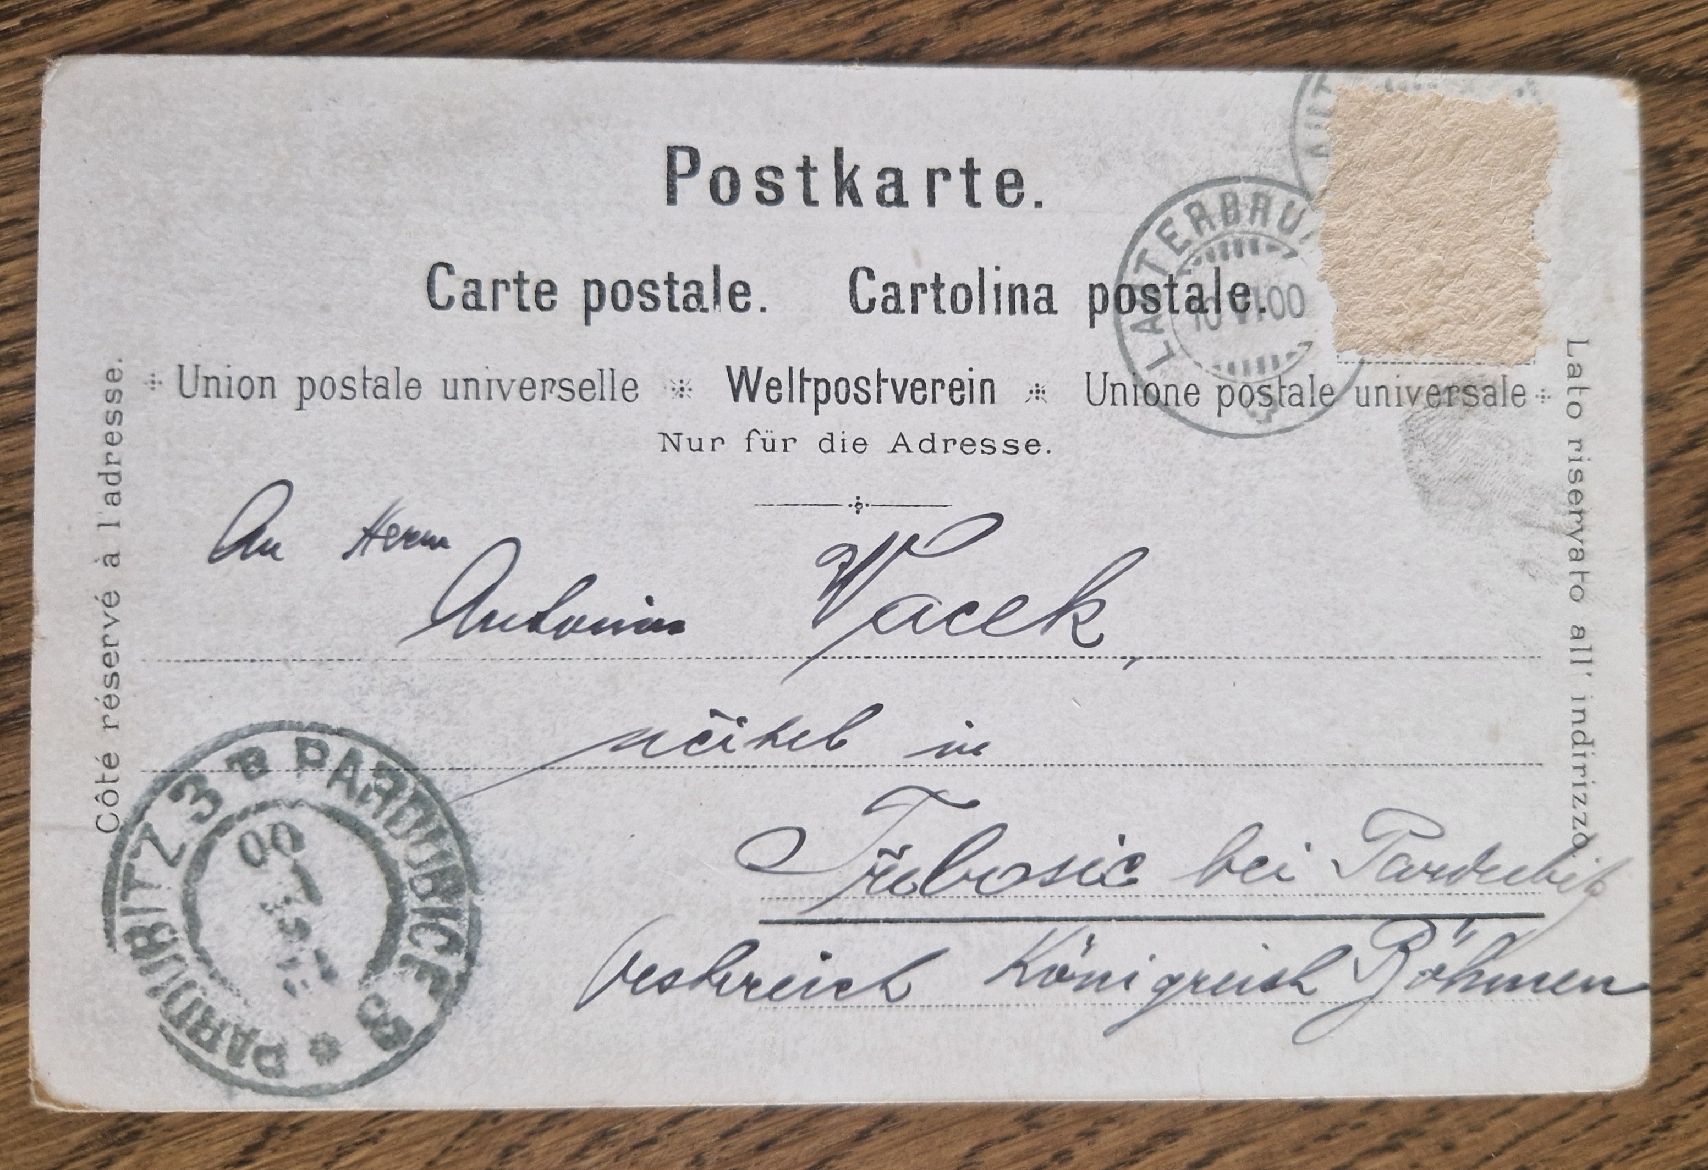 Postkarte.
Carte postale. Cartolina postale.
Union postale universelle Weltpostverein Unione postale universale
Nur für die Adresse.
Côté réservé à l'adresse.
Lato riservato all' indirizzo.
LAUTERBRU
VI.00
An Herrn
Antonín Vacek,
učitel in
Třebosic bei Pardubitz
Oesterreich Königreich Böhmen
PARDUBITZ 3 PARDUBICE
00